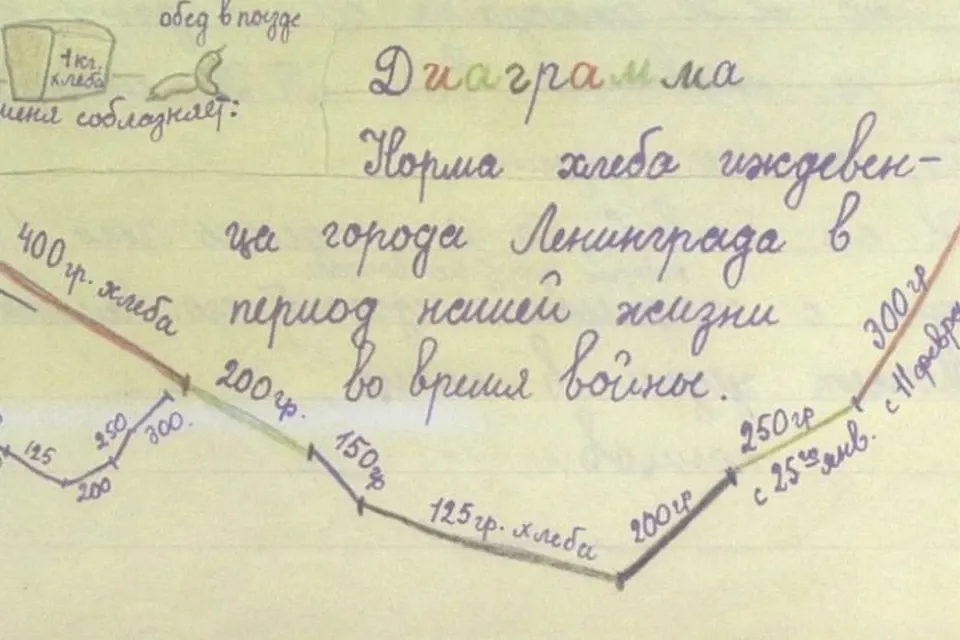 обед в поезде
1 кг.
хлеба
меня соблазняет:
Диаграмма
Норма хлеба иждевен-
ца города Ленинграда в
период нашей жизни
во время войны.
400 гр. хлеба
200 гр.
150 гр
125 гр. хлеба
200 гр
250 гр
с 25го янв.
300 гр
с 11 февра
125
200
250
300.